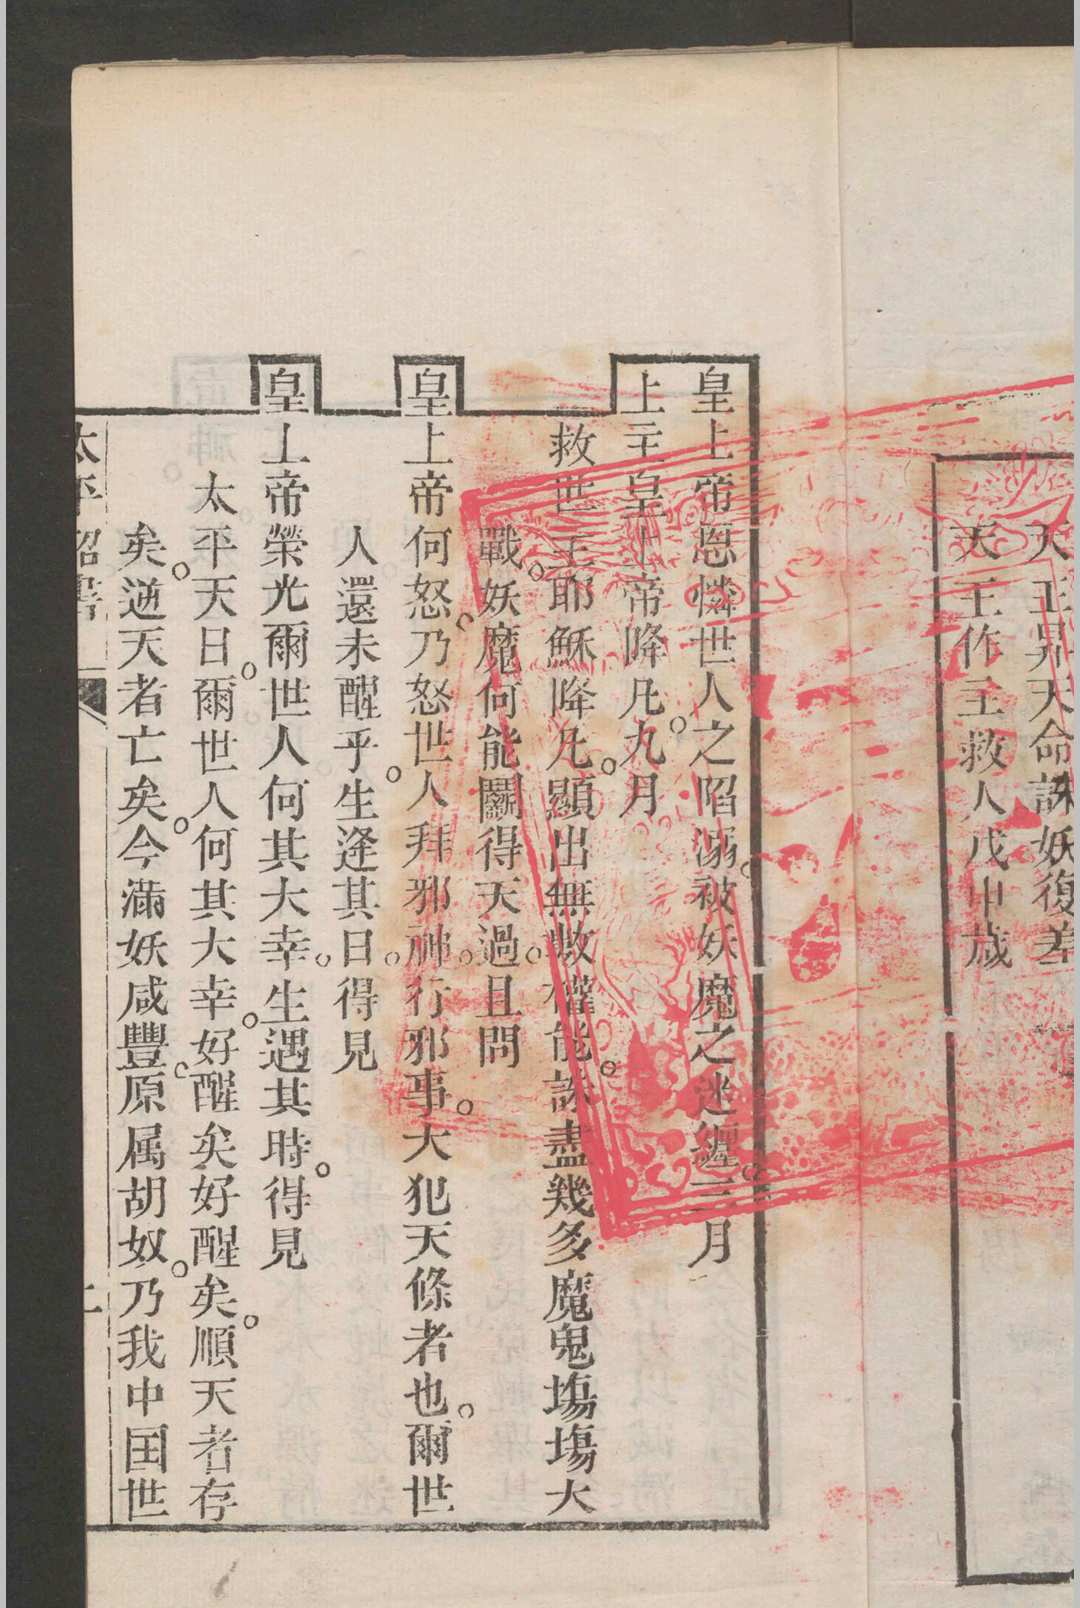 天王昇天命誅妖復差
天王作主救人戊申歲
皇上帝恩憐世人之陷溺。被妖魔之迷纏。三月
上主皇上帝降凡。九月
救世主耶穌降凡。顯出無數權能。誅盡幾多魔鬼塲塲大
戰。妖魔何能鬭得天過。且問
皇上帝何怒。乃怒世人拜邪神。行邪事。大犯天條者也。爾世
人還未醒乎。生逢其日。得見
皇上帝榮光爾世人何其大幸。生遇其時。得見
太平天日。爾世人何其大幸。好醒矣好醒矣。順天者存
矣。逆天者亡矣。今滿妖咸豐。原属胡奴。乃我中国世
太平詔書